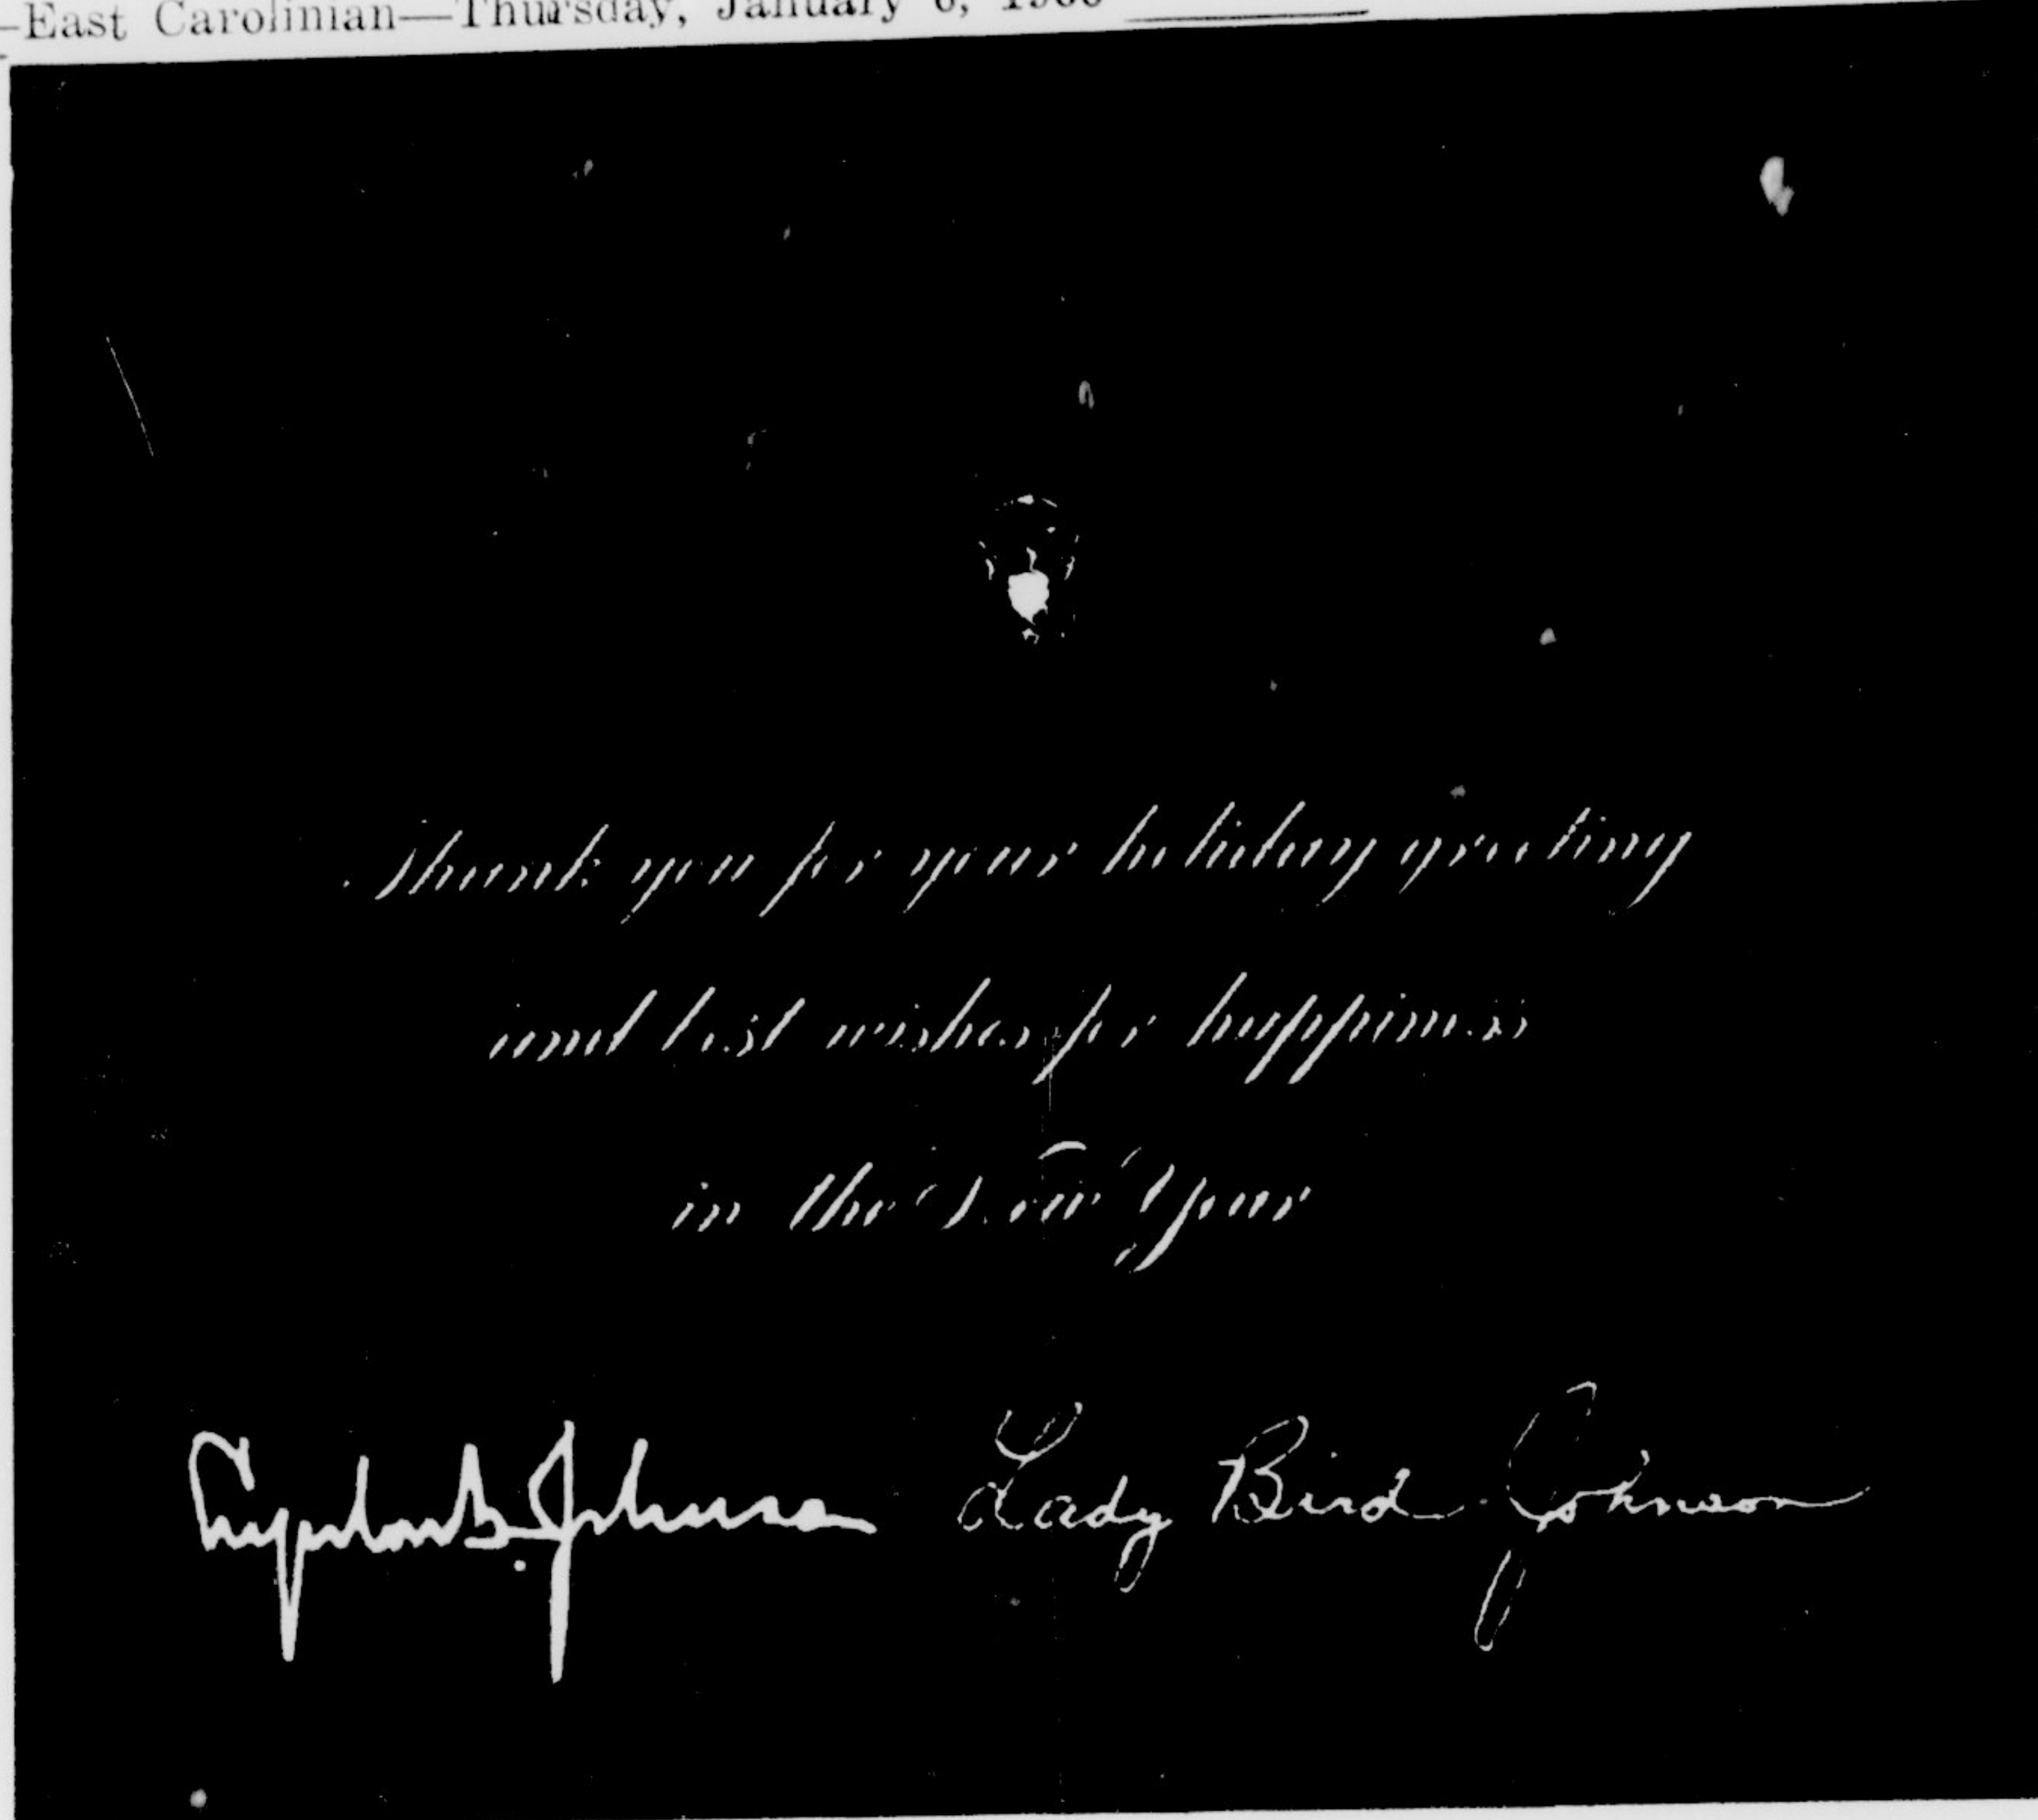 —East Carolinian—Thursday, January 6, 1966
Thank you for your holiday greeting
and best wishes for happiness
in the New Year
Lyndon B. Johnson Lady Bird Johnson